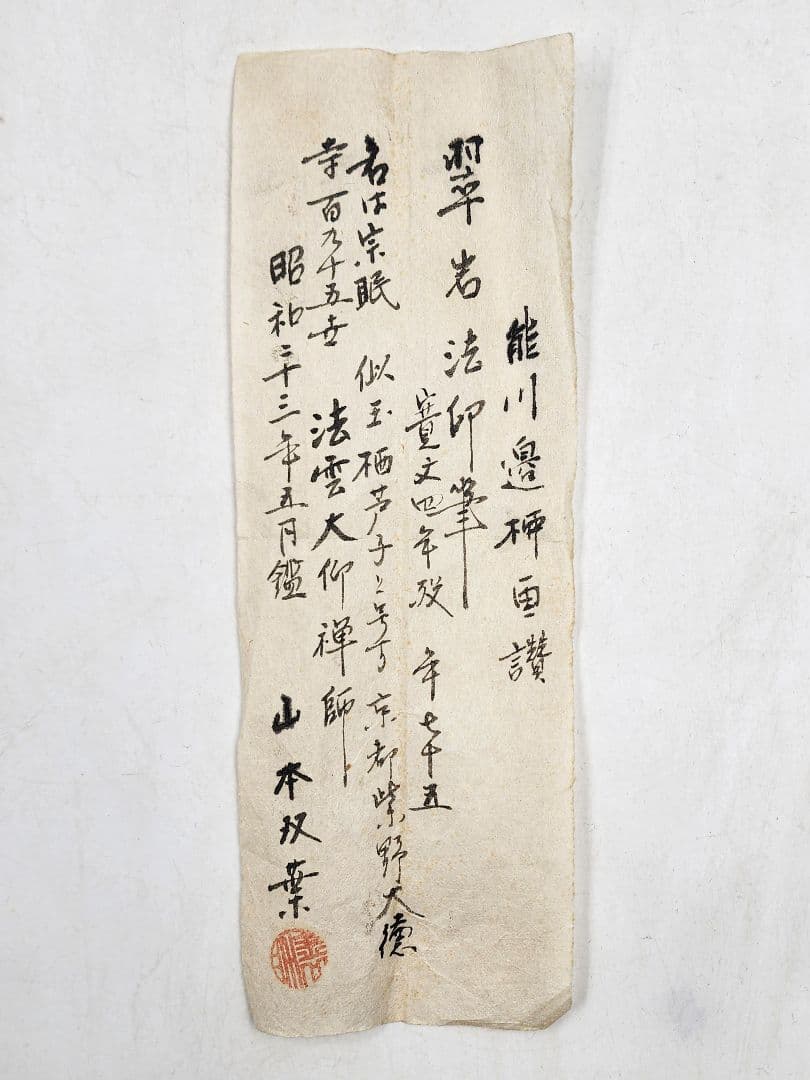 能川邊柳画讃
翠岩法印筆
寛文四年歿 年七十五
名は宗眠 似玉栖芦子と号す 京都紫野大徳
寺百九十五世 法雲大仰禅師
昭和二十三年五月鑑 山本双葉